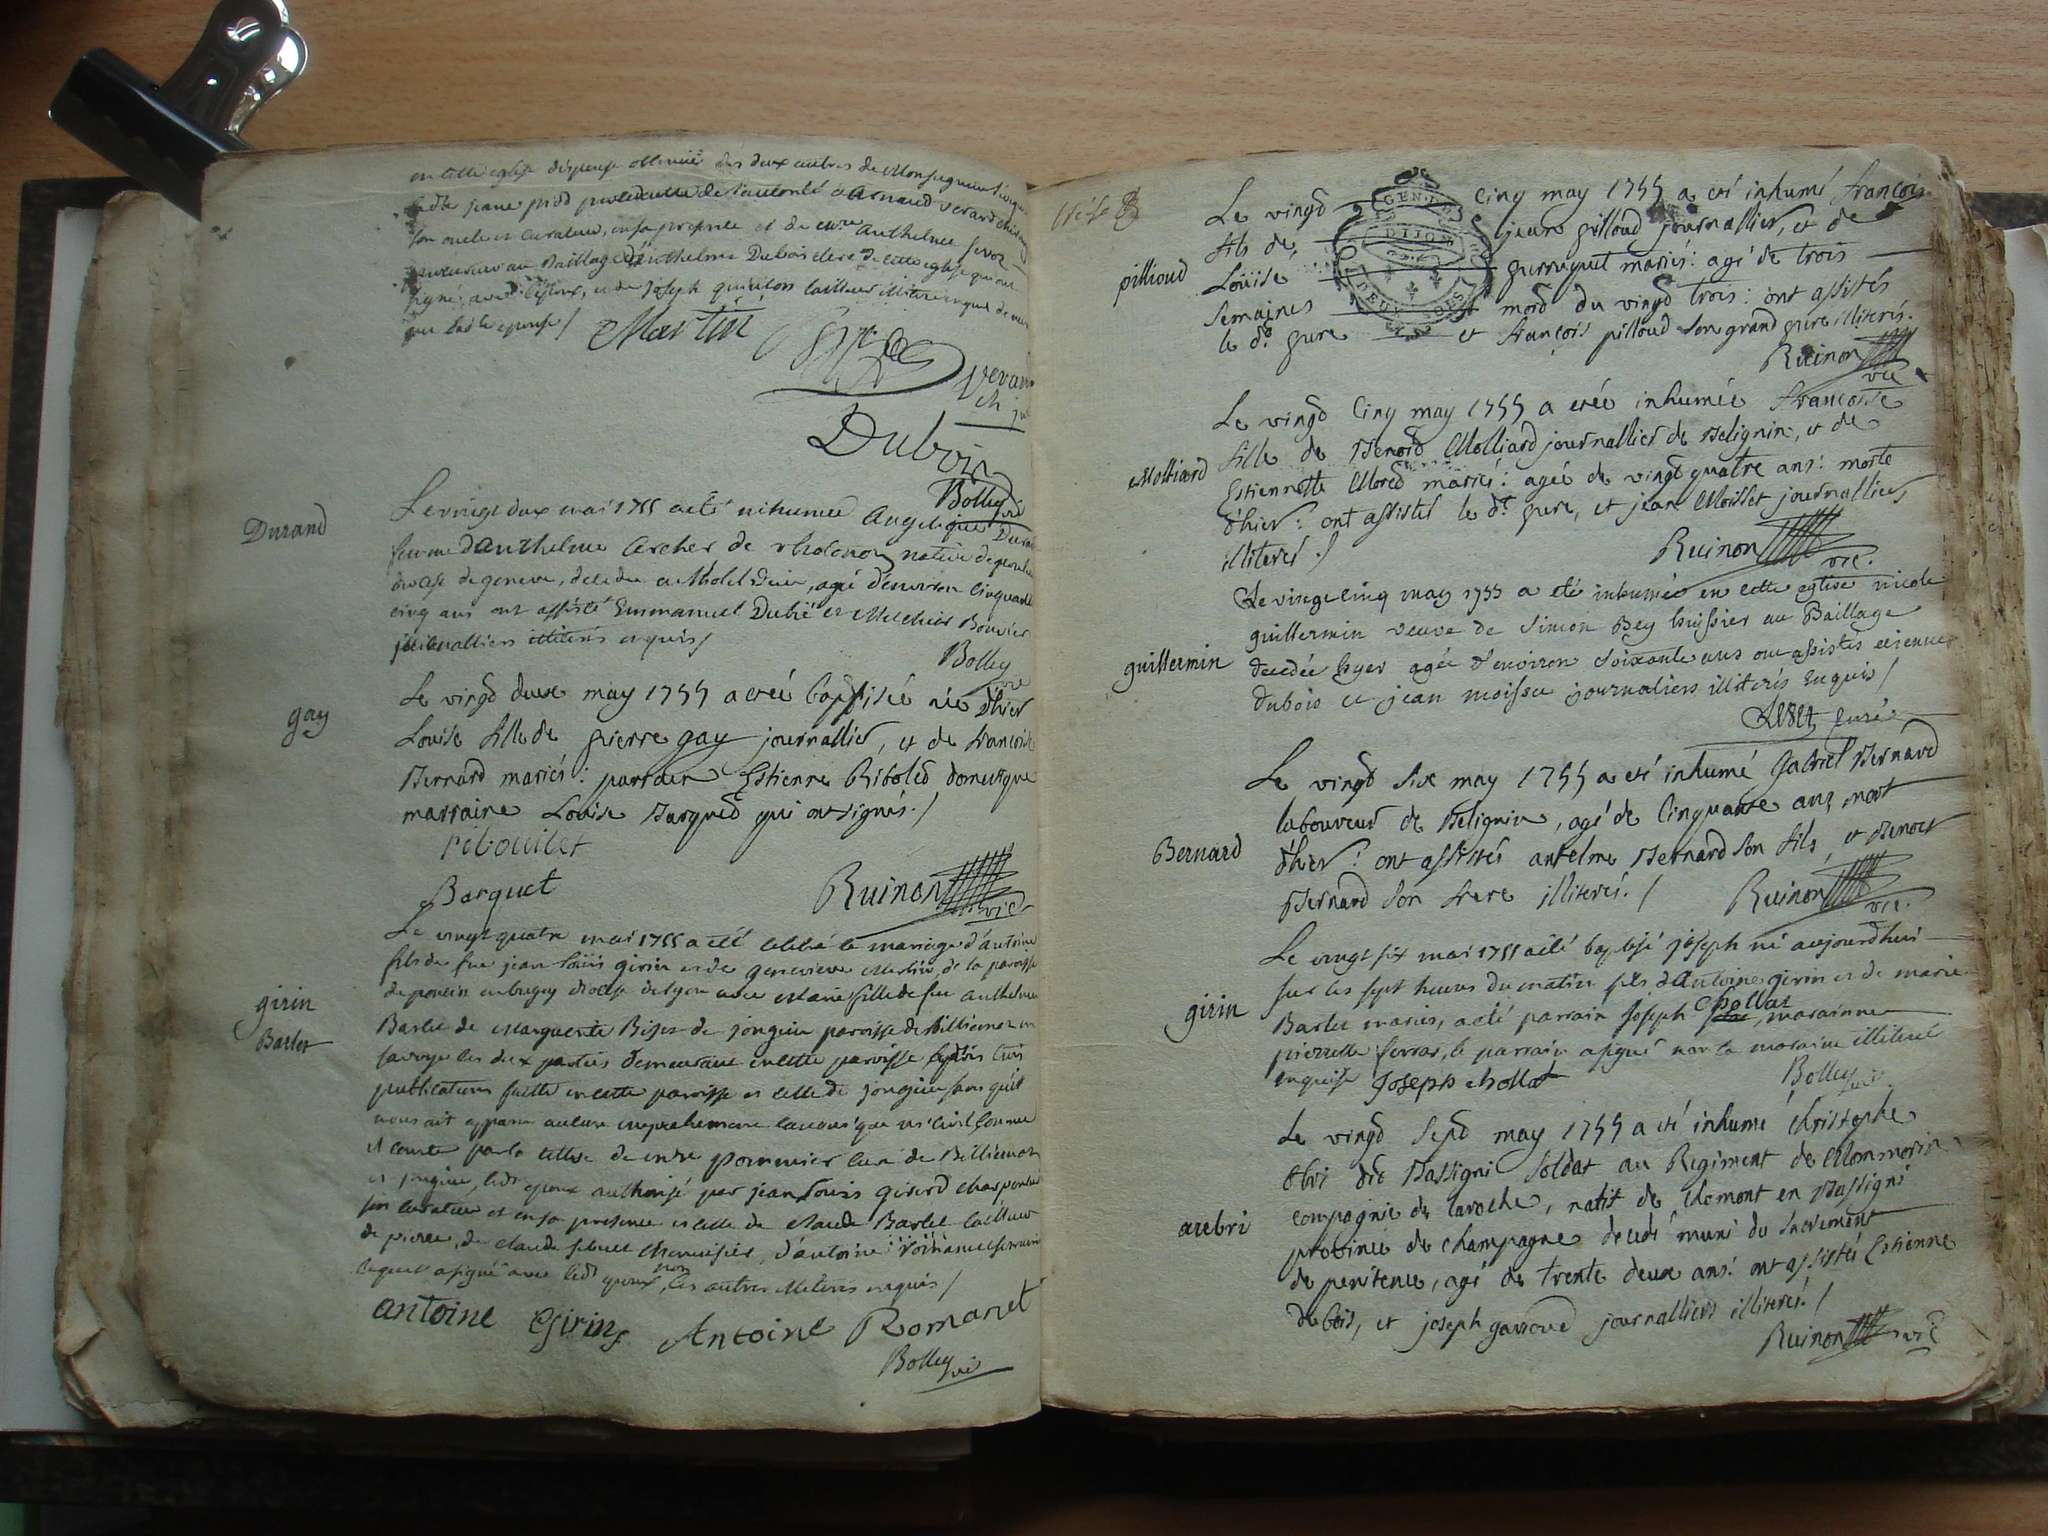 en cette eglise dispense obtenue des deux autres de Monseigneur
jeanne procedante de l'autorité d'Arnaud
son oncle et curateur, en sa presence et de anthelme
procureur au Baillage d'anthelme Dubois clerc de cette eglise qui ont
signé avec l'epoux, et de joseph tailleur illiteré enquis de même
que lad.te epouse /
Martin
Dubois
Bolley vic
Durand
Le vingt deux mai 1755 a eté inhumée Angelique Durand
femme d'anthelme Archer de native de
diocese de geneve, decedée a l'hotel Dieu, agé d'environ cinquante
cinq ans ont assisté Emmanuel Dubié et Melchior Bouvier
journalliers illiterés enquis /
Bolley
vic
gay
Le vingd deux may 1755 a etéé baptisée née d'hier
Louise fille de pierre gay journallier, et de francoise
Bernard mariés : parrain Estienne Riboled domestique
marraine Louise Barqued qui ont signés. /
ribouilet
Barquet
Ruinon vic
girin
Barlet
Le vingt quatre mai 1755 a eté celebré le mariage d'antoine
fils de feu jean Loüis girin et de genevieve Merlin, de la paroisse
de poncin en bugey diocese de Lyon avec Marie fille de feu anthelme
Barlet de Marguerite de jongieu paroisse de Billiemoz en
savoye les deux parties demeurant en cette paroisse trois
publications faitte en cette paroisse et celle de jongieu sans qu'il
nous ait apparu aucun empechement canonique ni civil comme
il conste par la lettre de m.re pommier curé de Billiemoz
et jongieu, led.t epoux authorisé par jean Louis girerd charpentier
son curateur et en sa presence et celle de claude Barlet tailleur
de pierre, de claude Menuisier, d'antoine romanet serrurier
lequel a signé avec led.t epoux non les autres illiteres enquis /
antoine Girin Antoine Romanet
Bolley vic
GEN. DE
DIJON
pilloud
Le vingd cinq may 1755 a eté inhumé francois
fils de jean pilloud journallier, et de
Loüise perriquet mariés : agé de trois
semaines mord du vingd trois : ont assistés
le d.t pere et françois pilloud son grand pere illiterés.
Ruinon
vic
Molliard
Le vingd cinq may 1755 a etéé inhumée francoise
fille de Benoid Molliard journallier de Belignin, et de
Estiennette Mored mariés : agée de vingd quatre ans : morte
d'hier : ont assistés le d.t pere, et jean Moisset journalliers
illiterés. /
Ruinon vic.
guillermin
Le vingt cinq may 1755 a eté inhumée en cette eglise nicole
guillermin veuve de simon Bey huissier au Baillage
decedée hyer agée d'environ soixante ans ont assistés etienne
Dubois et jean moisset journaliers illiterés enquis /
curé
Bernard
Le vingd six may 1755 a eté inhumé Gabriel Bernard
laboureur de Belignin, agé de cinquante ans mort
d'hier : ont assistés antelme Bernard son fils, et Benoit
Bernard son frere illiterés. /
Ruinon vic.
girin
Le vingt six mai 1755 a eté baptisé joseph né aujourdhui
sur les sept heures du matin fils d'Antoine girin et de marie
Barlet mariés, a eté parrain joseph chollat, marainne
pierrette ferrar, le parrain a signé non la maraine illiteré
enquise Joseph chollat
Bolley vic
aubri
Le vingd sepd may 1755 a eté inhumé christophe
Obri dit Bassigni soldat au Regiment de Monmorin
compagnie de laroche, natif de clemont en Bassigni
province de champagne decedé muni du sacrement
de penitence, agé de trente deux ans : ont assistés Estienne
dubois, et joseph garroud journalliers illiterés. /
Ruinon vic